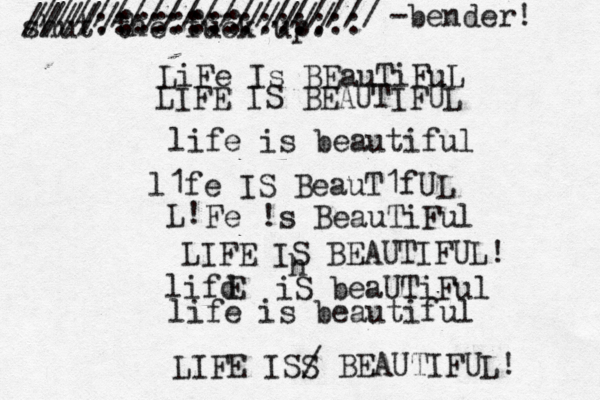 -bender!
LiFe Is BEauTiFuL
LIFE IS BEAUTIFUL
life is beautiful
l1fe IS BeauT1fUL
L!Fe !s BeauTiFul
LIFE IS BEAUTIFUL!
lifE iS beaUTiFul
life is beautiful
LIFE ISS/ BEAUTIFUL!